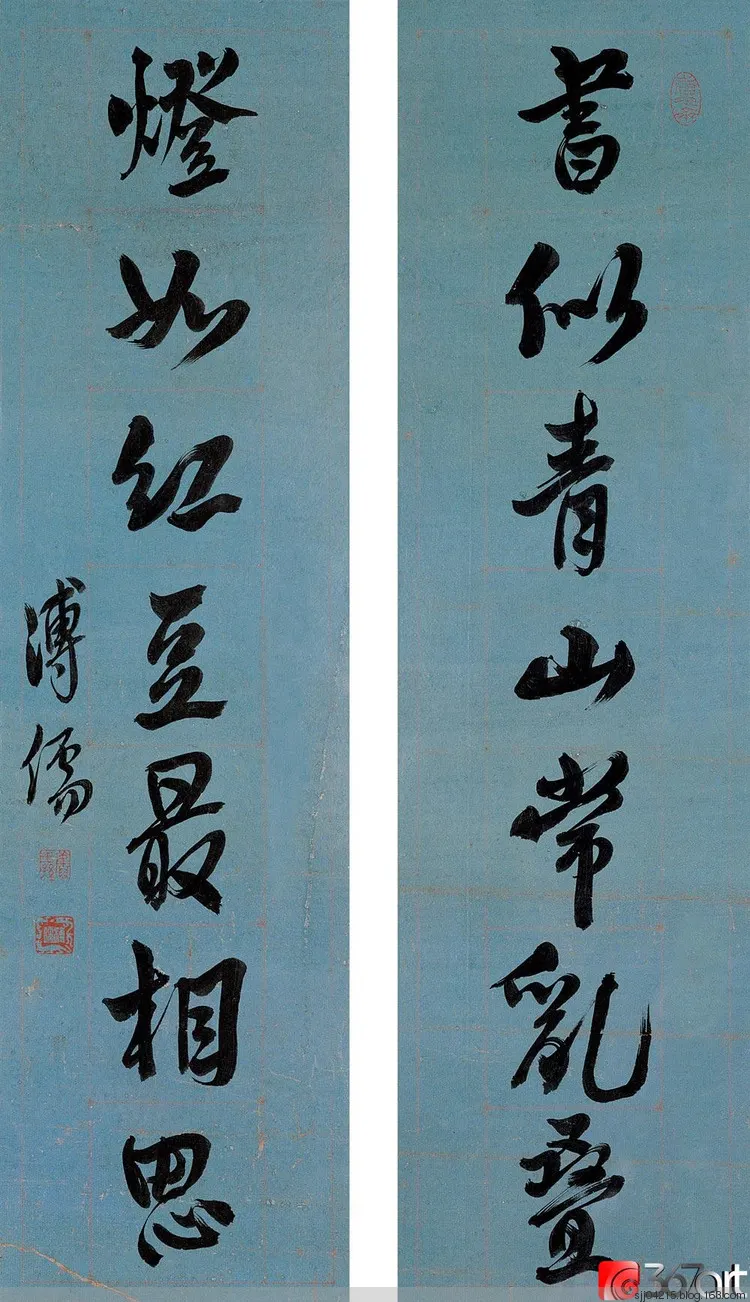 書似青山常亂叠
燈如紅豆最相思
溥儒
367art
sjj04215.blog.163.com